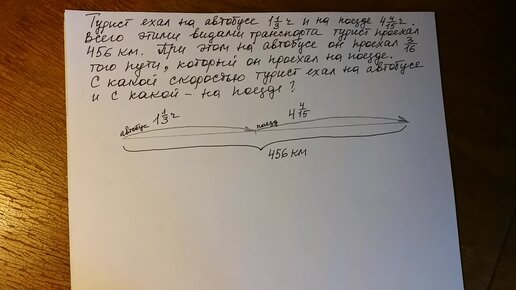 Турист ехал на автобусе 1 1/3 ч и на поезде 4 4/15 ч.
Всего этими видами транспорта турист проехал
456 км. При этом на автобусе он проехал 3/16
того пути, который он проехал на поезде.
С какой скоростью турист ехал на автобусе
и с какой - на поезде?
автобус 1 1/3 ч поезд 4 4/15
456 км